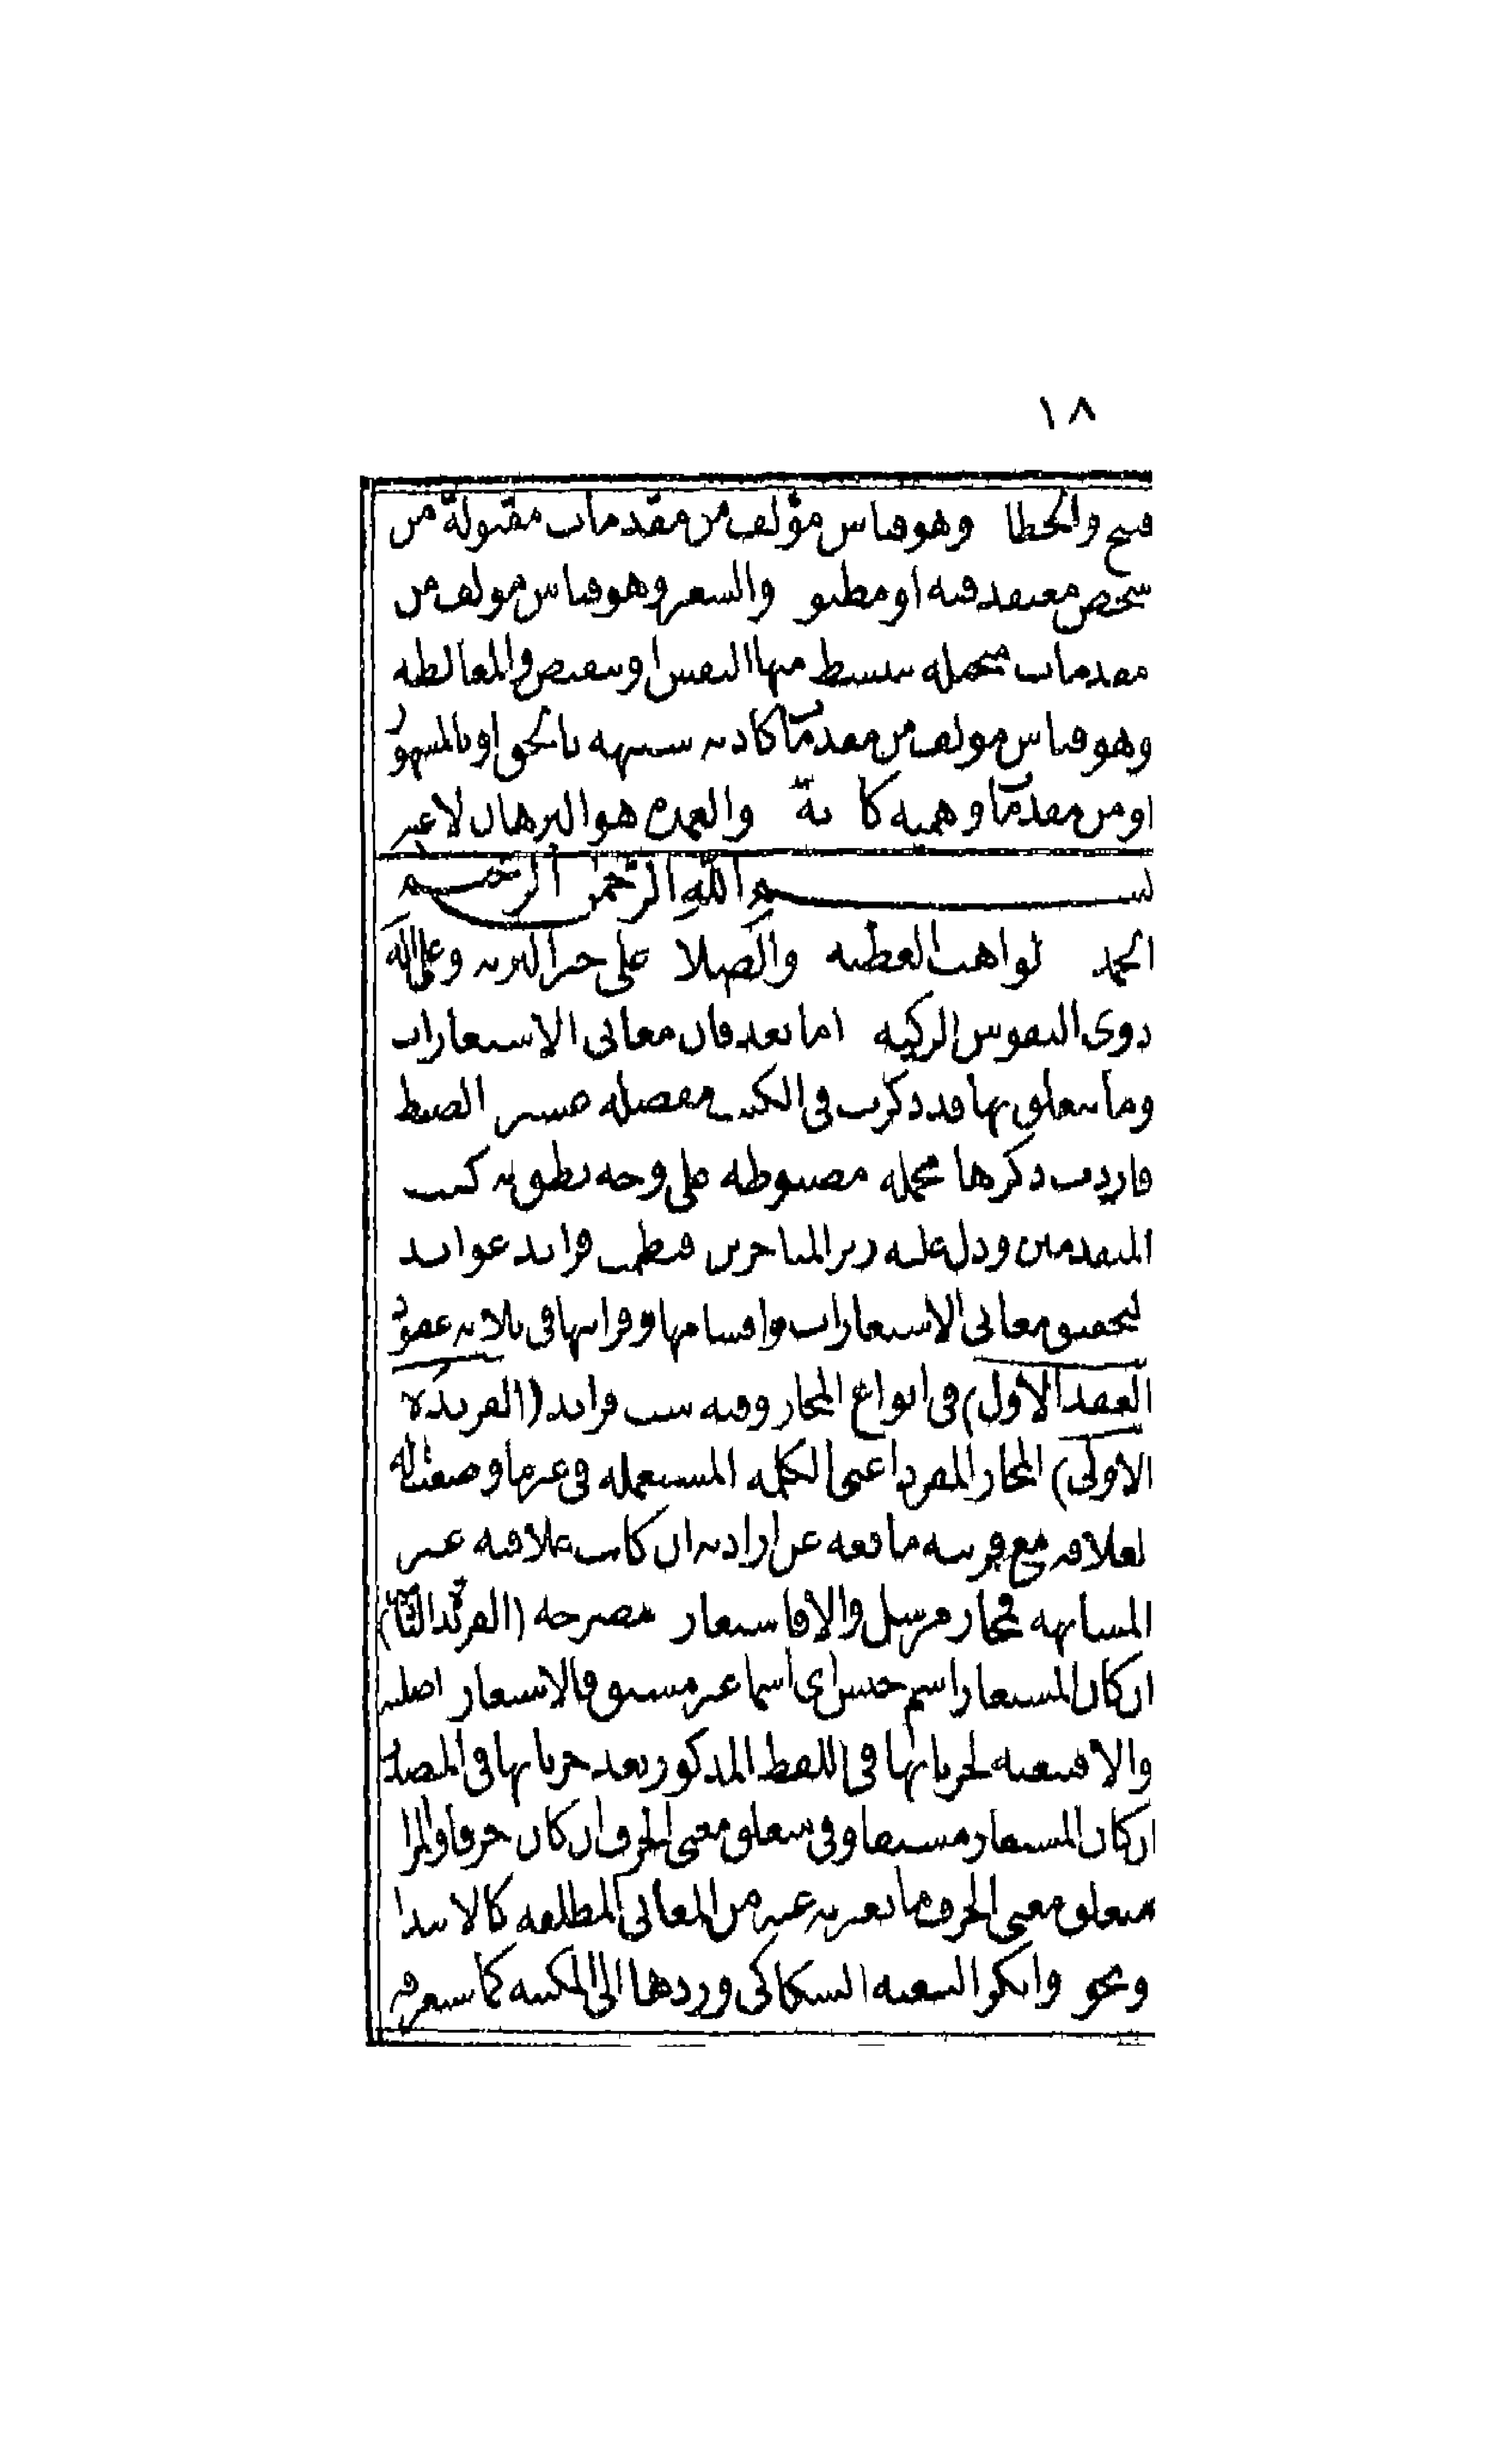 ١٨
قبيح والخطابة وهو قياس مؤلف من مقدمات مقبولة من
شخص معتقد فيه او مظنونة والشعر وهو قياس مؤلف من
مقدمات متخيلة تنبسط منها النفس او تنقبض والمغالطة
وهو قياس مؤلف من مقدمات كاذبة شبيهة بالحق او بالمشهور
او من مقدمات وهمية كاذبة والعمدة هو البرهان لا غير
بسم الله الرحمن الرحيم
الحمد لواهب العطية والصلاة على خير البرية وعلى اله
ذوى النفوس الزكية اما بعد فان معانى الاستعارات
وما يتعلق بها قد ذكرت فى الكتب مفصلة عسيرة الضبط
فاردت ذكرها مجملة مضبوطة على وجه نطق به كتب
المتقدمين ودل عليه زبر المتاخرين فنظمت فرائد عوائد
لتحقيق معانى الاستعارات واقسامها وقرائنها فى ثلاثة عقود
العقد الاول) فى انواع المجاز وفيه ست فرائد (الفريدة
الاولى) المجاز المفرد اعنى الكلمة المستعملة فى غير ما وضعت له
لعلاقة مع قرينة مانعة عن ارادته ان كانت علاقته غير
المشابهة فمجاز مرسل والا فاستعارة مصرحة (الفريدة الثانية)
ان كان المستعار اسم جنس اى اسما غير مشتق فالاستعارة اصلية
والا فتبعية لجريانها فى اللفظ المذكور بعد جريانها فى المصدر
ان كان المستعار مشتقا وفى متعلق معنى الحرف ان كان حرفا والمراد
بمتعلق معنى الحرف ما يعبر به عنه من المعانى المطلقة كالابتداء
ونحوه وانكر التبعية السكاكى وردها الى المكنية كما ستعرفه